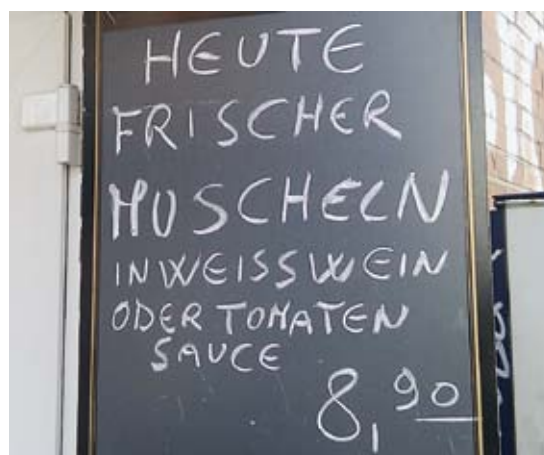 HEUTE
FRISCHER
MUSCHELN
IN WEISSWEIN
ODER TOMATEN
SAUCE
8,90